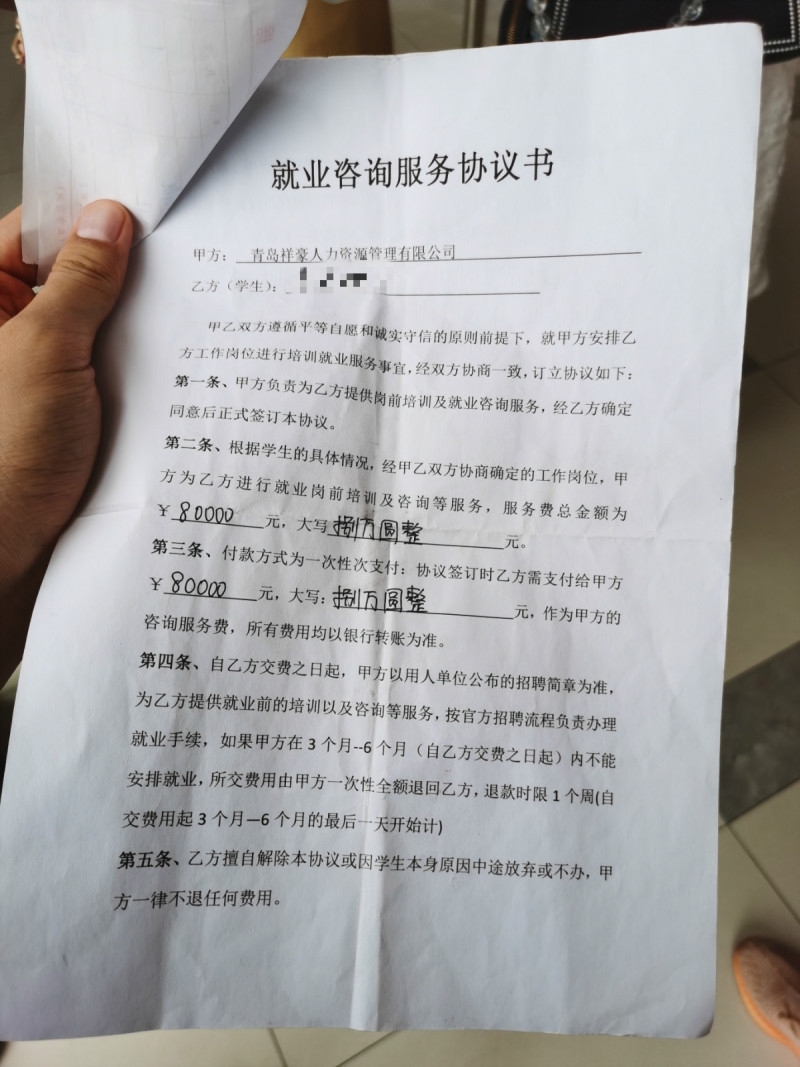 就业咨询服务协议书
甲方：青岛祥豪人力资源管理有限公司
乙方（学生）：
甲乙双方遵循平等自愿和诚实守信的原则前提下，就甲方安排乙
方工作岗位进行培训就业服务事宜，经双方协商一致，订立协议如下：
第一条、甲方负责为乙方提供岗前培训及就业咨询服务，经乙方确定
同意后正式签订本协议。
第二条、根据学生的具体情况，经甲乙双方协商确定的工作岗位，甲
方为乙方进行就业岗前培训及咨询等服务，服务费总金额为
￥80000元，大写捌万圆整元。
第三条、付款方式为一次性次支付：协议签订时乙方需支付给甲方
￥80000元，大写：捌万圆整元，作为甲方的
咨询服务费，所有费用均以银行转账为准。
第四条、自乙方交费之日起，甲方以用人单位公布的招聘简章为准，
为乙方提供就业前的培训以及咨询等服务，按官方招聘流程负责办理
就业手续，如果甲方在3个月--6个月（自乙方交费之日起）内不能
安排就业，所交费用由甲方一次性全额退回乙方，退款时限1个周(自
交费用起3个月—6个月的最后一天开始计)
第五条、乙方擅自解除本协议或因学生本身原因中途放弃或不办，甲
方一律不退任何费用。